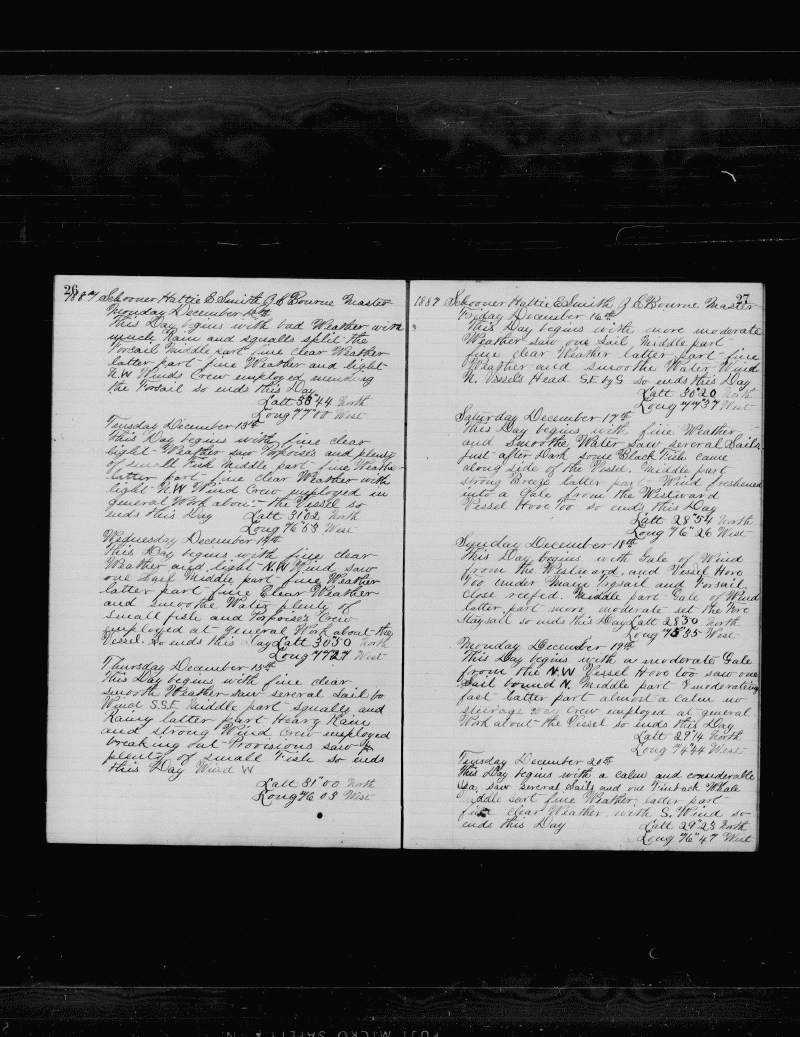 26
1887 Schooner Hattie E Smith G E Bourne Master
Monday December 12th
This Day begins with bad Weather with
much Rain and squalls split the
Forsail Middle part fine clear Weather
latter part fine Weather and light
N.W Winds Crew employed mending
the Forsail so ends this Day
Latt 30°44 North
Long 77°00 West
Tuesday December 13th
This Day begins with fine clear
light Weather saw Porpoise's and plenty
of small Fish Middle part fine Weather
latter part fine clear Weather with
light N.W Wind Crew employed in
general Work about the Vessel so
ends this Day Latt 31°02 North
Long 76°53 West
Wednesday December 14th
This Day begins with fine clear
Weather and light N.W Wind saw
one Sail Middle part fine Weather
latter part fine Clear Weather
and smoothe Water plenty of
small fish and Porpoise's Crew
employed at general Work about the
Vessel. So ends this Day Latt 30 50 North
Long 77 27 West
Thursday December 15th
This Day begins with fine clear
smooth Weather saw several Sail to
Wind S.S.E Middle part squalls and
Rainy latter part Heavy Rain
and strong Wind Crew employed
breaking out Provisions saw
plenty of small Fish so ends
this Day Wind W
Latt 31°00 North
Long 76 03 West
27
1887 Schooner Hattie E Smith G E Bourne Master
Friday December 16th
This Day begins with more moderate
Weather saw one Sail Middle part
fine clear Weather latter part fine
Weather and smoothe Water Wind
N. Vessels Head S.E by S so ends this Day
Latt 30°20 North
Long 77°37 West
Saturday December 17th
This Day begins with fine Weather
and Smoothe Water saw several Sails
just after Dark some Black Fish came
along side of the Vessel. Middle part
strong Breeze latter part Wind freshened
into a Gale from the Westward
Vessel Hove Too so ends this Day
Latt 28°54 North
Long 76°26 West
Sunday December 18th
This Day begins with Gale of Wind
from the Westward and Vessel Hove
Too under Maine Trysail and Forsail
close reefed. Middle part Gale of Wind
latter part more moderate set the Fore
Staysail so ends this Day Latt 28 30 North
Long 75°35 West
Monday December 19th
This Day begins with a moderate Gale
from the N.W Vessel Hove too saw one
Sail bound N. Middle part moderating
fast latter part almost a calm no
steerage way Crew employed at general
Work about the Vessel so ends this Day
Latt 29°14 North
Long 74°44 West
Tuesday December 20th
This Day begins with a calm and considerable
Sea, saw several Sails and one Finback Whale
Middle part fine Weather, latter part
fine clear Weather with S. Wind so
ends this Day Latt 29°23 North
Long 76°47 West
FUJI MICRO SAFETY